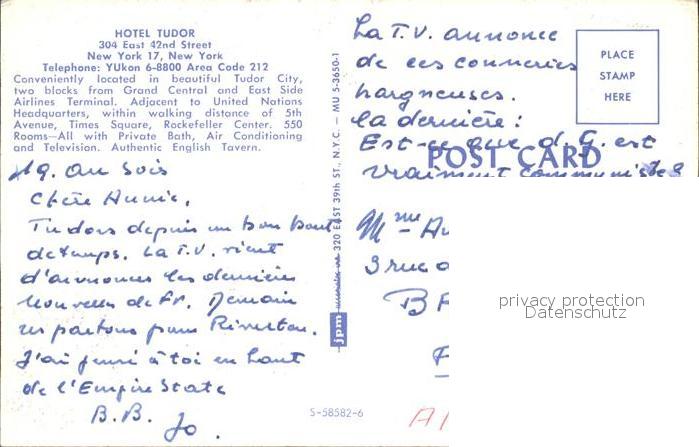 HOTEL TUDOR
304 East 42nd Street
New York 17, New York
Telephone: YUkon 6-8800 Area Code 212
Conveniently located in beautiful Tudor City,
two blocks from Grand Central and East Side
Airlines Terminal. Adjacent to United Nations
Headquarters, within walking distance of 5th
Avenue, Times Square, Rockefeller Center. 550
Rooms—All with Private Bath, Air Conditioning
and Television. Authentic English Tavern.
19. au soir
Chère Annie,
Tu dors depuis un bon bout
de temps. La T.V. vient
d'annoncer les dernières
nouvelles de Fr. Demain
ns partons pour Riverton.
J'ai pensé à toi en haut
de l'Empire State
B.B. Jo.
S-58582-6
jpm 320 EAST 39th ST., N.Y.C. — MU 5-3650-1
La T.V. annonce
de ces conneries
hargneuses.
la dernière:
Est-ce que d. G. est
vraiment communiste?
POST CARD
PLACE
STAMP
HERE
Mme
3 rue
privacy protection
Datenschutz